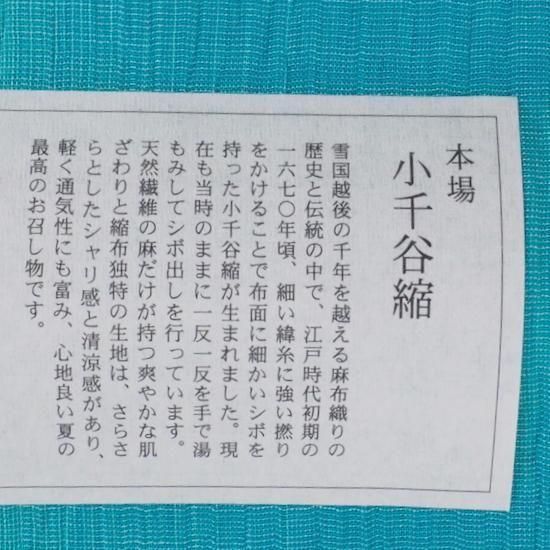 本場
小千谷縮
雪国越後の千年を越える麻布織りの
歴史と伝統の中で、江戸時代初期の
一六七〇年頃、細い緯糸に強い撚り
をかけることで布面に細かいシボを
持った小千谷縮が生まれました。現
在も当時のままに一反一反を手で湯
もみしてシボ出しを行っています。
天然繊維の麻だけが持つ爽やかな肌
ざわりと縮布独特の生地は、さらさ
らとしたシャリ感と清涼感があり、
軽く通気性にも富み、心地良い夏の
最高のお召し物です。